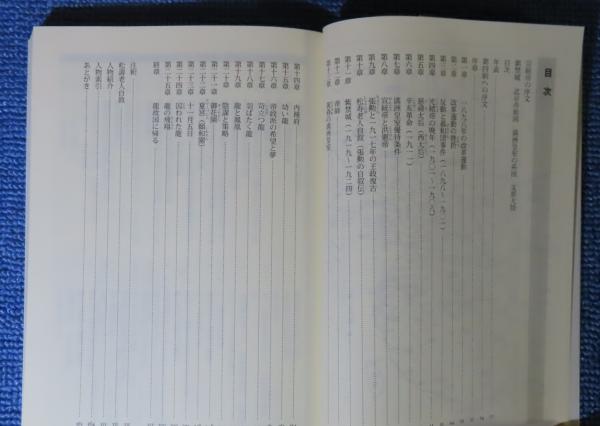 目次
宣統帝の序文
年表
第四刷への序文
序章
第一章 一八九八年の改革運動
第二章 改革運動の挫折
第三章 反動と義和団事件(一八九八〜一九〇一)
第四章 光緒帝の晩年(一九〇一〜一九〇八)
第五章 慈禧太后(西太后)
第六章 辛亥革命(一九一一)
第七章 満洲皇室優待条件
第八章 宣統帝と洪憲帝
第九章 張勲と一九一七年の王政復古
第十章 松寿老人自叙(張勲の自叙伝)
第十一章 紫禁城(一九一九〜一九二四)
第十二章 帝師
第十三章
第十四章 内務府
第十五章 幼い龍
第十六章 帝政派の希望と夢
第十七章 苛立つ龍
第十八章 羽ばたく龍
第十九章 龍と鳳凰
第二十章 陰謀と策略
第二十一章 御花園
第二十二章 夏宮(頤和園)
第二十三章 十一月五日
第二十四章 囚われた龍
第二十五章 龍の飛翔
終章 龍故国に帰る
注釈
松壽老人自敍
人物紹介
人物索引
あとがき